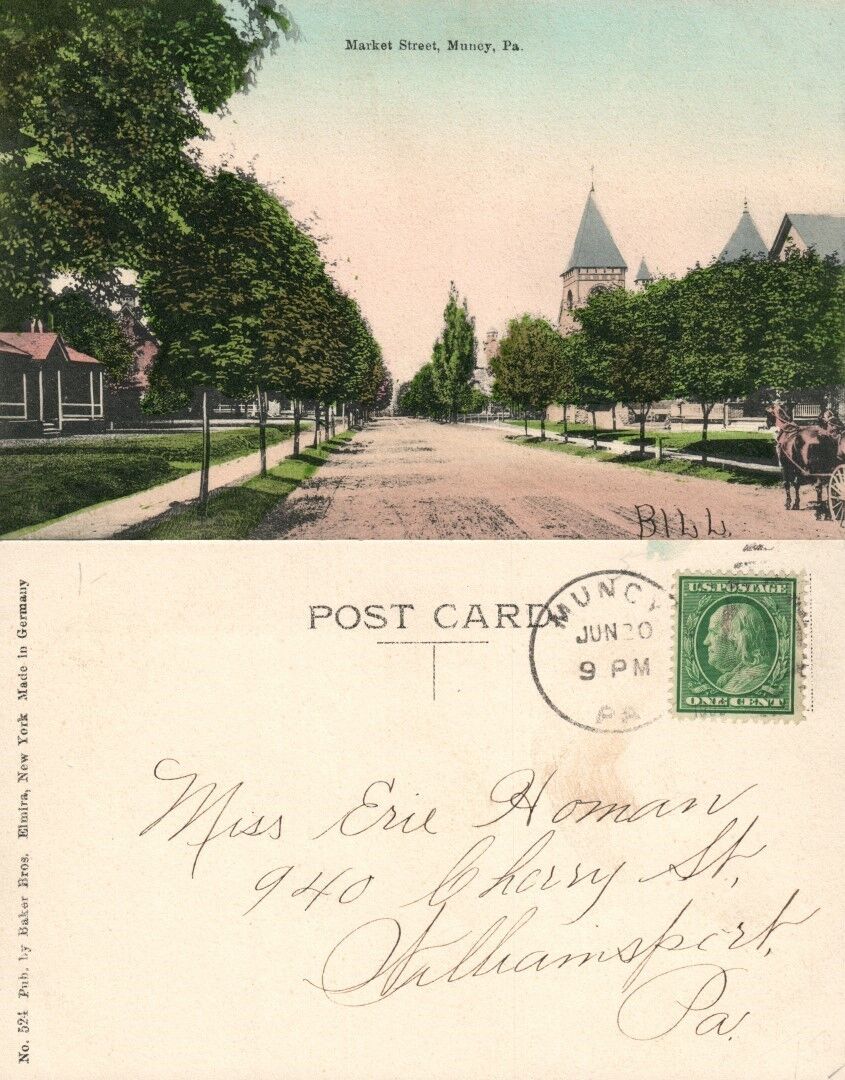 Market Street, Muncy, Pa.
BILL.
POST CARD
MUNCY
JUN 20
9 PM
PA
U.S. POSTAGE
ONE CENT
Miss Erie Homan
940 Cherry St,
Williamsport,
Pa.
No. 524 Pub. by Baker Bros. Elmira, New York Made in Germany